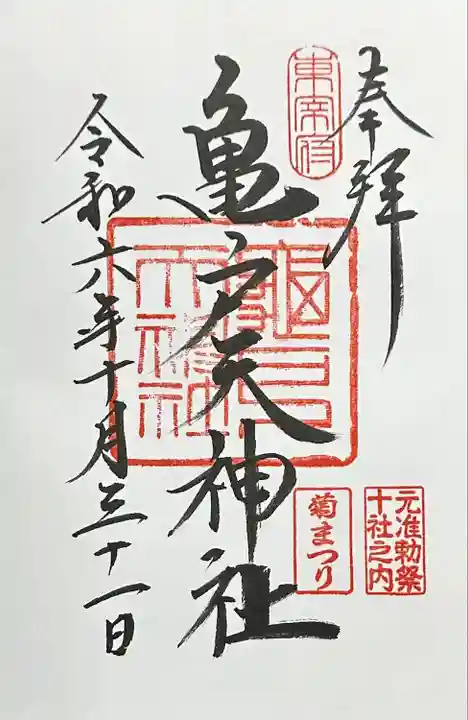 奉拝
東宰府
亀戸天神社
令和六年十月三十一日
菊まつり
元准勅祭
十社之内